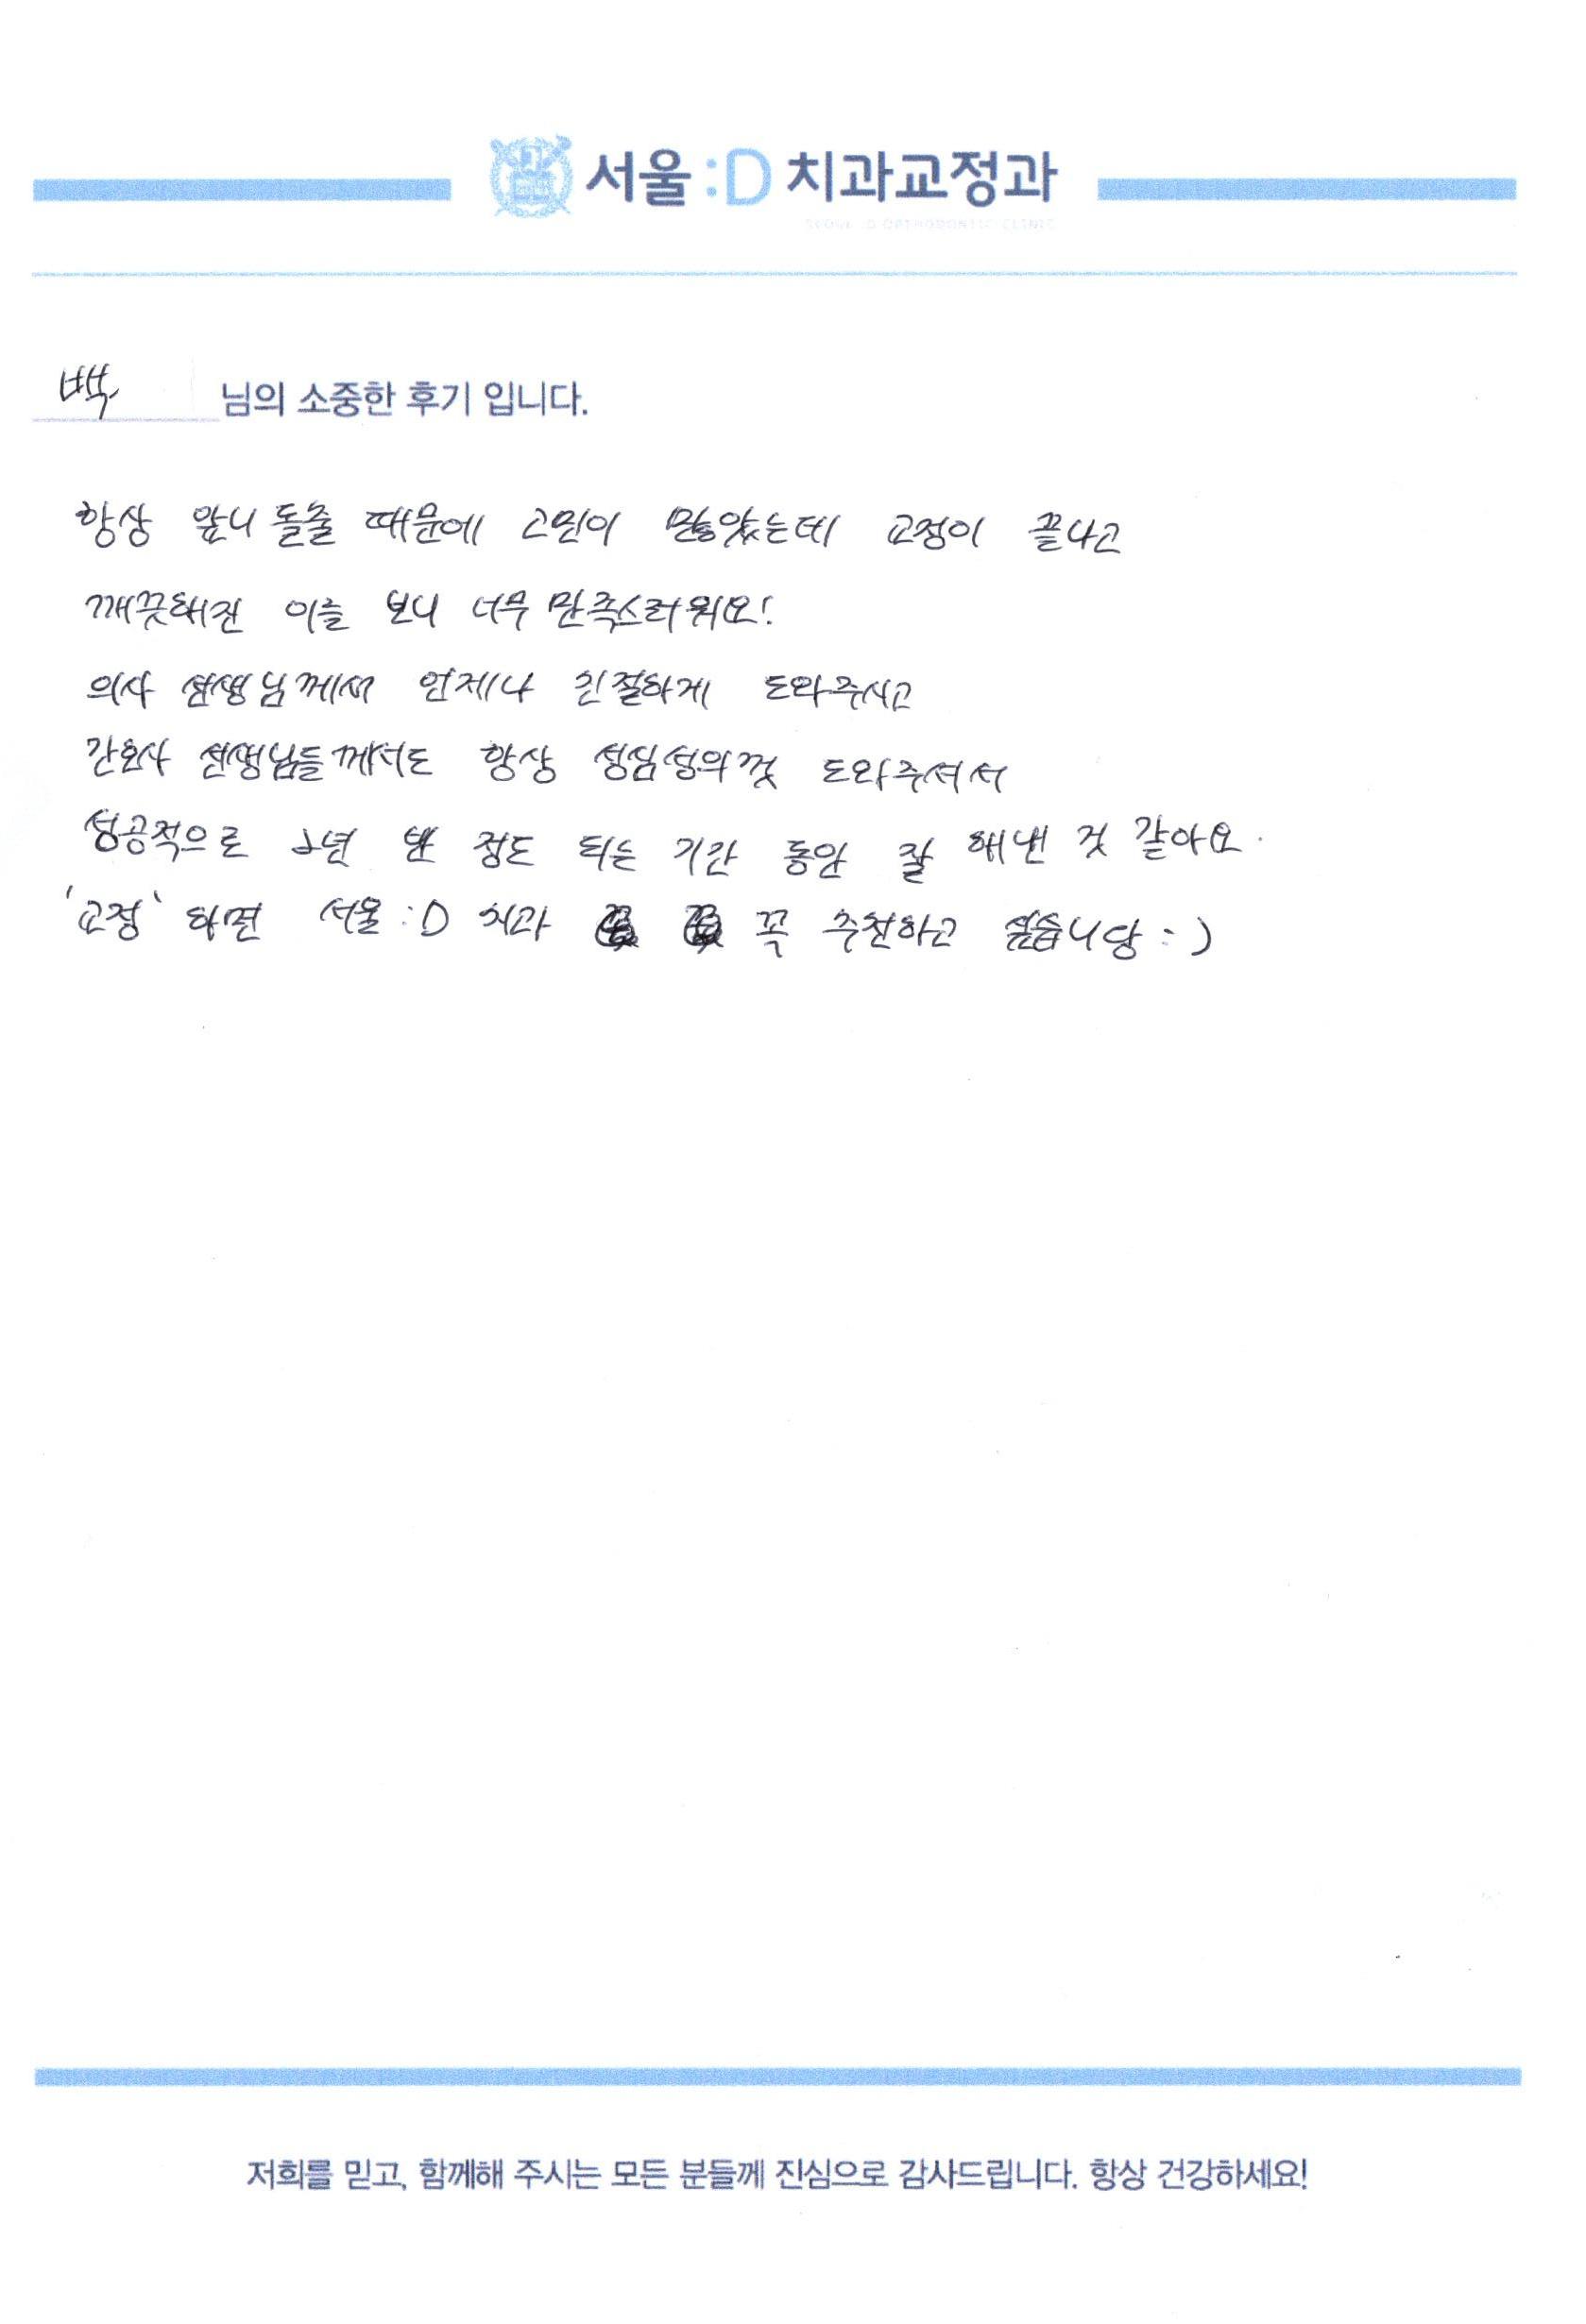 서울:D 치과교정과
SEOUL :D ORTHODONTIC CLINIC
백 님의 소중한 후기 입니다.
항상 앞니 돌출 때문에 고민이 많았는데 교정이 끝나고
깨끗해진 이를 보니 너무 만족스러워요!
의사 선생님께서 언제나 친절하게 도와주시고
간호사 선생님들께서도 항상 성심성의껏 도와주셔서
성공적으로 2년 반 정도 되는 기간 동안 잘 해낸 것 같아요.
'교정' 하면 서울:D 치과 꼭 추천하고 싶습니당 :)
저희를 믿고, 함께해 주시는 모든 분들께 진심으로 감사드립니다. 항상 건강하세요!